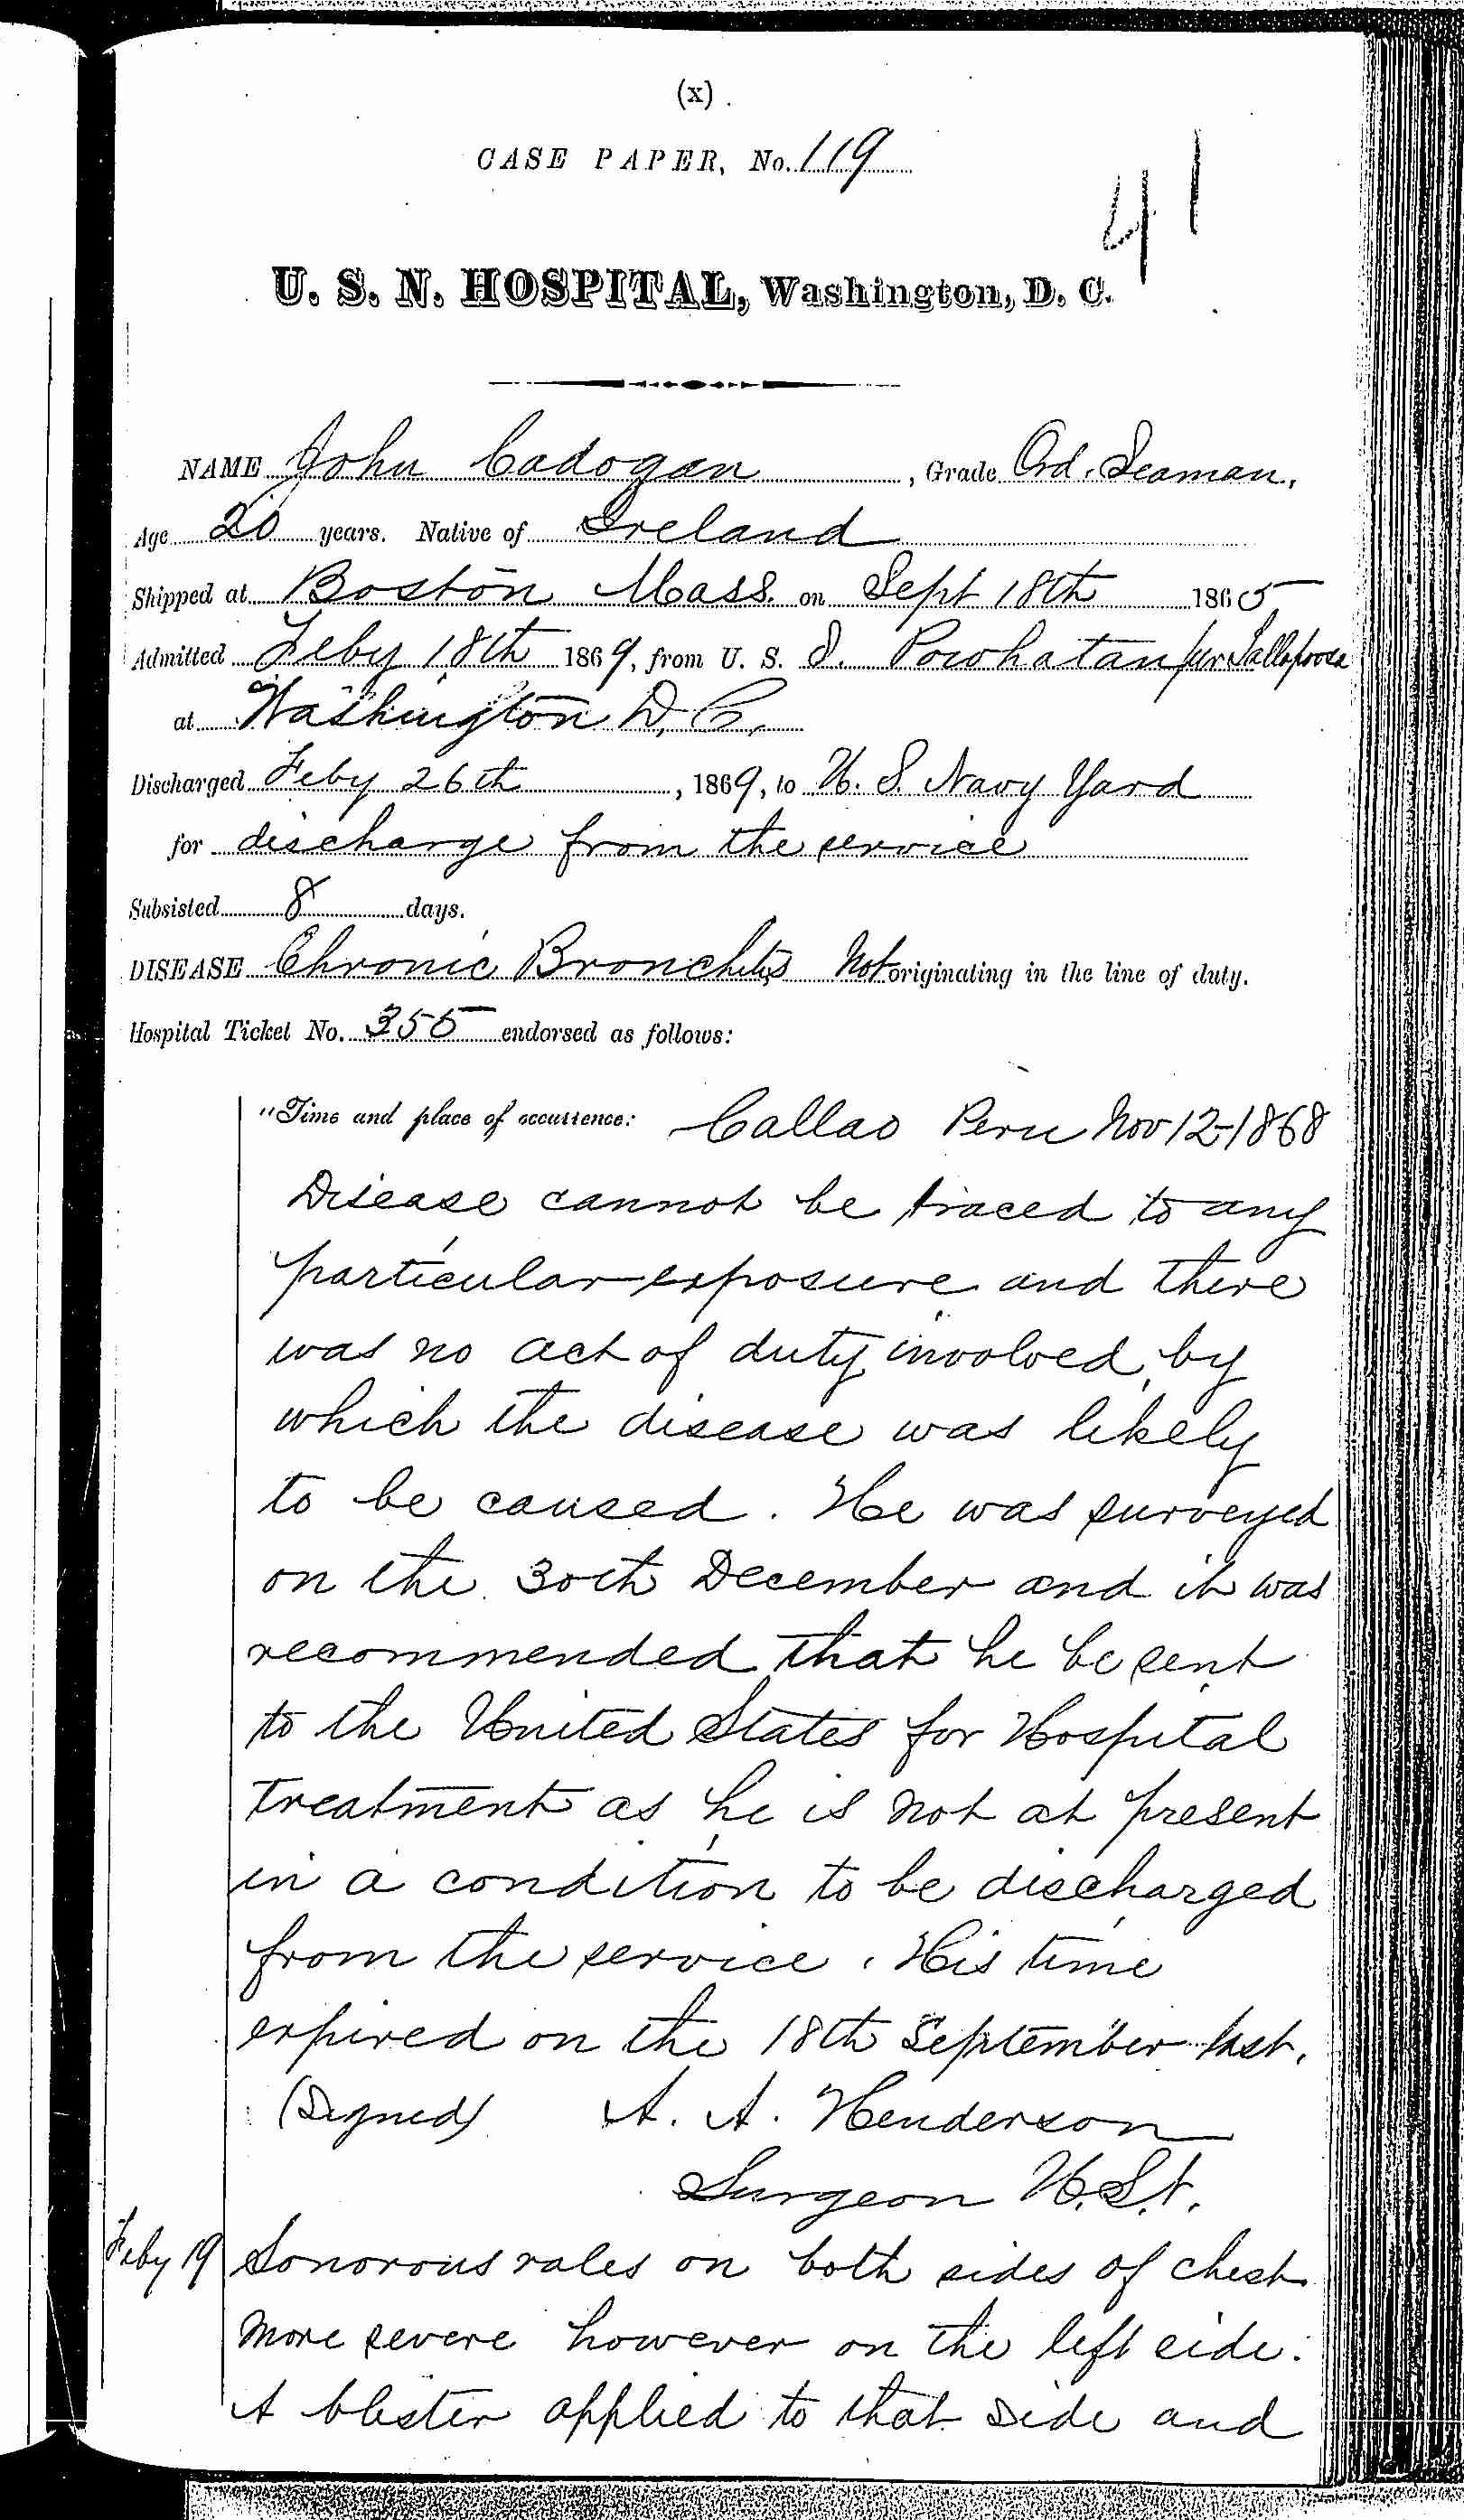 (x).
CASE PAPER, No. 119
41
U. S. N. HOSPITAL, Washington, D. C.
NAME John Cadogan, Grade Ord. Seaman,
Age 20 years. Native of Ireland
Shipped at Boston Mass. on Sept 18th 1865
Admitted Feby 18th 1869, from U. S. S. Powhatan per Tallapoosa
at Washington D. C.
Discharged Feby 26th, 1869, to U. S. Navy Yard
for discharge from the service
Subsisted 8 days.
DISEASE Chronic Bronchitis Not originating in the line of duty.
Hospital Ticket No. 355 endorsed as follows:
"Time and place of occurrence: Callao Peru Nov 12-1868
Disease cannot be traced to any
particular exposure and there
was no act of duty involved, by
which the disease was likely
to be caused. He was surveyed
on the 30th December and it was
recommended that he be sent
to the United States for Hospital
treatment as he is not at present
in a condition to be discharged
from the service. His time
expired on the 18th September last.
(Signed) A. A. Henderson
Surgeon U.S.N.
Feby 19 Sonorous rales on both sides of chest
more severe however on the left side.
A blister applied to that side and